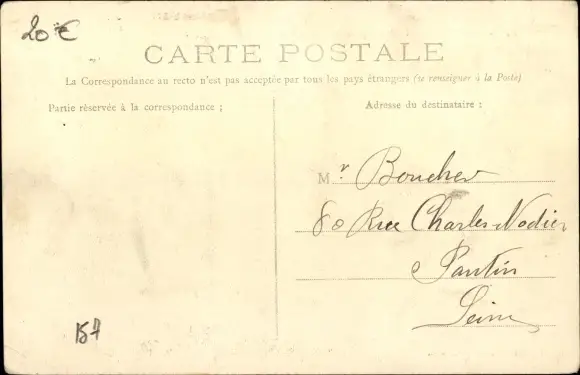 20 €
CARTE POSTALE
La Correspondance au recto n'est pas acceptée par tous les pays étrangers (se renseigner à la Poste)
Partie réservée à la correspondance ;
Adresse du destinataire :
Mr Boucher
80 Rue Charles Nodier
Pantin
Seine
157